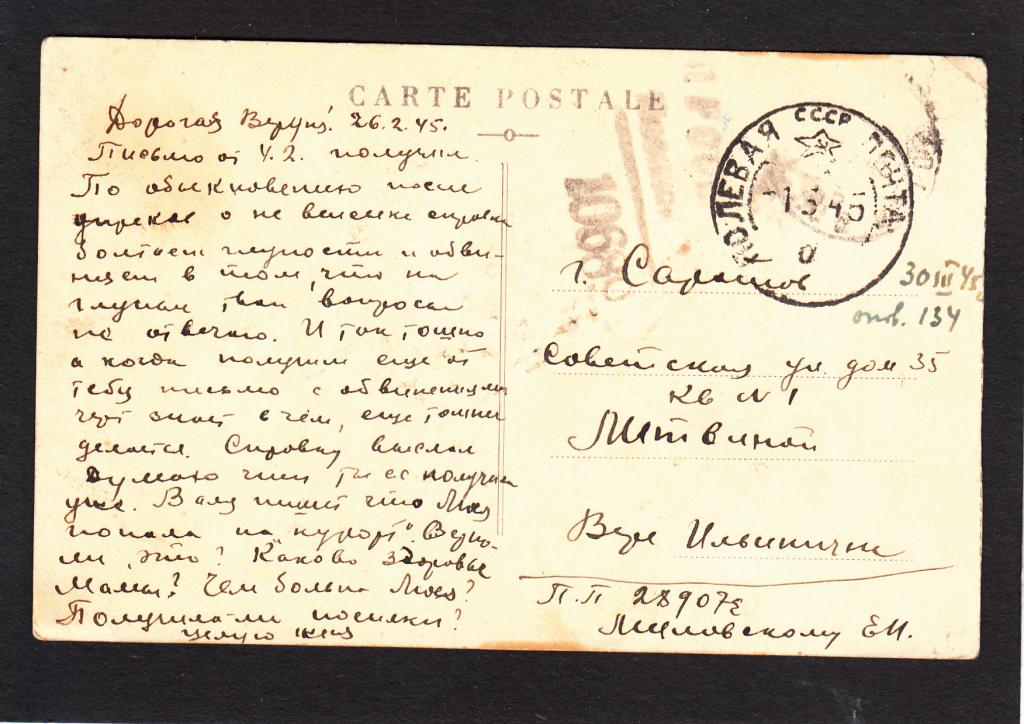 CARTE POSTALE
Дорогая Веруня! 26.2.45.
Письмо от 4.2. получил.
По обыкновению после
упреков о не высылке справки
болтаешь глупости и обви-
няешь в том, что на
глупые твои вопросы
не отвечаю. И так тошно
а когда получишь еще от
тебя письмо с обвинениями
чорт знает в чем, еще тошнее
делается. Справку выслал
думаю что ты ее получила
уже. Валя пишет что Люся
попала на "курорт". Верно-
ли это? Каково здоровье
Мамы? Чем больна Люся?
Получила-ли посылки?
целую
ПОЛЕВАЯ ПОЧТА
СССР
-1 3 45
г. Саратов
30 III 45
134
Советская ул. дом 35
кв N 1
Литвиной
Вере Ильиничне
П.П 28907
Е.И.